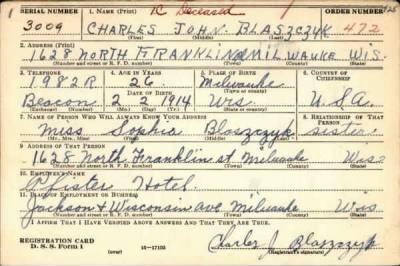 SERIAL NUMBER 1. NAME (Print) R Deceased ORDER NUMBER
3009 CHARLES JOHN. BLASZCZYK 472
(First) (Middle) (Last)
2. ADDRESS (Print)
1628 NORTH FRANKLIN MILWAUKE WIS.
(Number and street or R. F. D. number) (Town) (County) (State)
3. TELEPHONE 4. AGE IN YEARS 5. PLACE OF BIRTH 6. COUNTRY OF CITIZENSHIP
1982R 26 Milwauke
DATE OF BIRTH
Beacon 2 2 1914 Wis U.S.A
(Exchange) (Mo.) (Day) (Yr.) (State or country)
7. NAME OF PERSON WHO WILL ALWAYS KNOW YOUR ADDRESS 8. RELATIONSHIP OF THAT PERSON
Miss Sophia Blaszczyk sister
(Mr., Mrs., Miss) (First) (Middle) (Last)
9. ADDRESS OF THAT PERSON
1628 North Franklin st Milwauke Wiss
(Number and street or R. F. D. number) (Town) (County) (State)
10. EMPLOYER'S NAME
Pfister Hotel.
11. PLACE OF EMPLOYMENT OR BUSINESS
Jackson & Wisconsin Ave Milwauke Wis
(Number and street or R. F. D. number) (Town) (County) (State)
I AFFIRM THAT I HAVE VERIFIED ABOVE ANSWERS AND THAT THEY ARE TRUE.
REGISTRATION CARD
D. S. S. Form 1 (over) 16-17105 Charles J. Blaszczyk
(Registrant's signature)